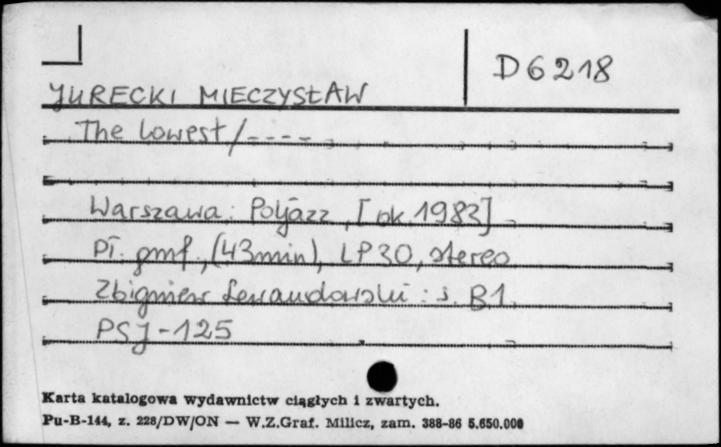 D6218
JURECKI MIECZYSŁAW
The Lowest / ----
Warszawa: Poljazz, [ok. 1983]
Pł. gmf., (43min), LP 30, stereo
Zbigniew Lewandowski: s. B1.
PSJ-125
Karta katalogowa wydawnictw ciągłych i zwartych.
Pu-B-144, z. 228/DW/ON — W.Z.Graf. Milicz, zam. 388-86 5.650.000